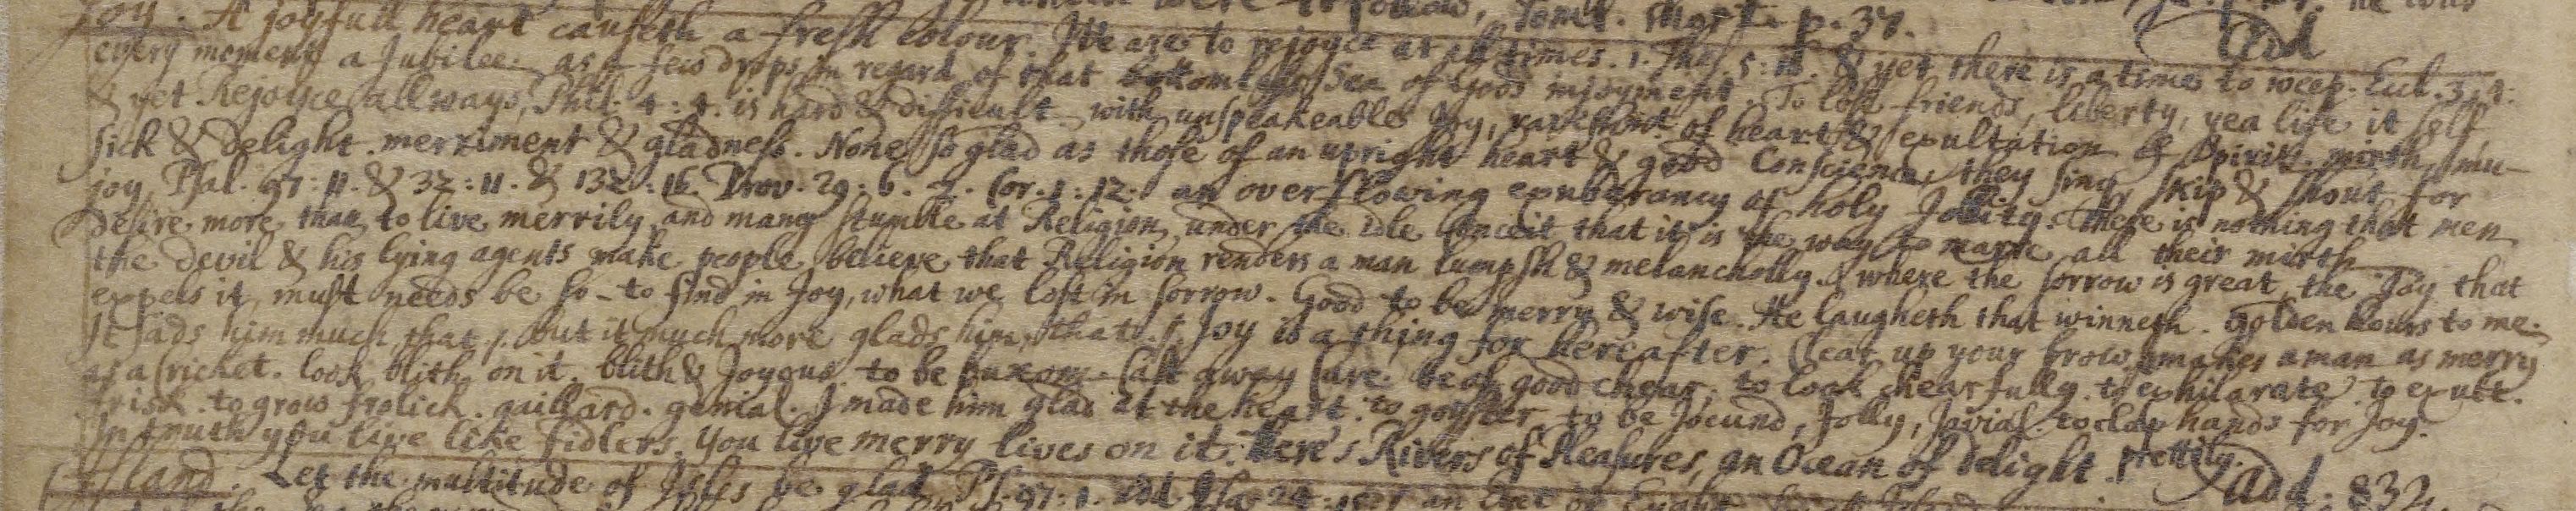 were to follow, Toml. Mort. p. 37. he was
Joy. A joyfull heart causeth a fresh colour. We are to rejoyce at all times. 1. Thes. 5:16. & yet there is a time to weep. Eccl. 3,4: Add
every moment a Jubilee. as a few drops in regard of that bottomless Sea of Gods injoyment. To lose friends, liberty, yea life it self
& yet Rejoyce allways, Phil. 4:4. is hard & difficult. with unspeakeable Joy, of heart & exultation of Spirit. mirth, mu-
sick & delight. merriment & gladness. None so glad as those of an upright heart & good Conscience, they sing, skip & shout for
joy. Psal. 97:11. & 32:11. & 132:16. Prov. 29:6. 2. Cor. 1:12. an overflowing exuberancy of holy Jollity. There is nothing that men
desire more than to live merrily, and many stumble at Religion, under the idle conceit that it is the way to marre all their mirth
the devil & his lying agents make people believe that Religion renders a man lumpish & melancholly. where the sorrow is great, the Joy that
expels it, must needs be so - to find in Joy, what we lost in sorrow. Good to be merry & wise. He laugheth that winneth. golden hours to me.
It sads him much, that /. but it much more glads him, that. /. Joy is a thing for hereafter. Clear up your brow. makes a man as merry
as a Cricket. look blith on it. blith & Joyous. to be buxom. Cast away Care. be of good chear, to look chearfully. to exhilarate. to exult.
frisk. to grow frolick. gaillard. genial. I made him glad at the heart. to be Jocund, Jolly, Jovial. to clap hands for Joy.
In truth you live like fidlers. you live merry lives on it. here's Rivers of Pleasures, an Ocean of delight. prettily. Add. 832
Island. Let the multitude of Isles be glad Ps. 97:1. add Isa. 24:15. an